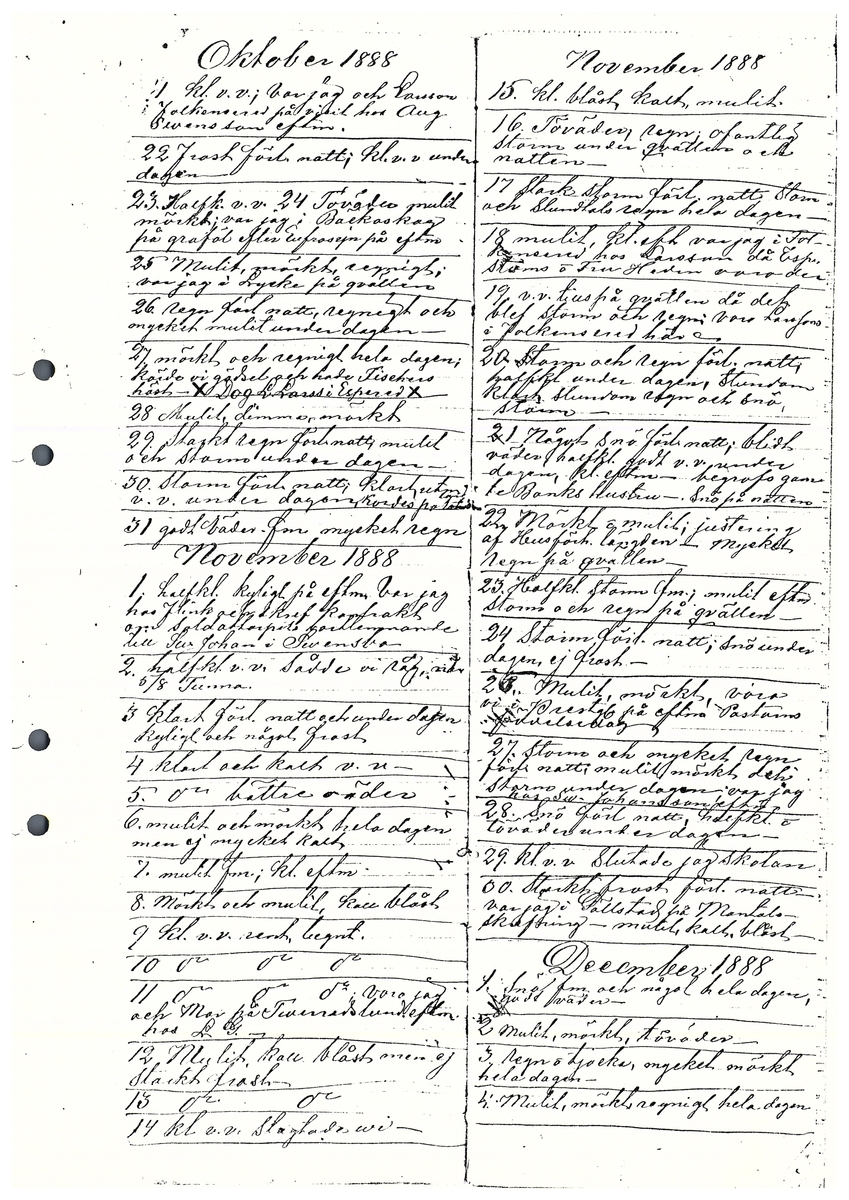 Oktober 1888
21 kl. v.v.; var jag och Larsson
i Tolkensered på visit hos Aug
Svensson eftm.
22 Frost förl. natt; kl. v.v under
dagen —
23. Halfk. v.v. 24 Töväder mulit
mörkt; var jag i Bäckaskog
på graföl efter Eufrosyn på eftm
25 Mulit, mörkt, regnigt;
var jag i Lycke på qvällen
26. regn förl. natt, regnigt och
mycket mulit under dagen —
27, mörkt och regnigt hela dagen;
körde vi gödsel och hade Fischers
häst — X Dog L Larss i Espered X
28 Mulit, dimma, mörkt
29. Starkt regn förl. natt, mulit
och storm under dagen —
30. Storm förl. natt; klart,
v.v. under dagen, kördes på
31 godt väder fm mycket regn
November 1888
1, halfkl. kyligt på eftm. Var jag
hos och skref kontrakt
om soldattorpets
till Sv. Johan i Svensbo
2. halfkl. v.v. Sådde vi råg,
5/8 Tunna.
3 klart förl. natt och under dagen
kyligt och något frost
4 klart och kallt v.v —
5. do bättre väder
6. mulit och mörkt hela dagen
men ej mycket kallt
7. mulit fm; kl. eftm.
8. Mörkt och mulit, kall blåst
9 kl. v.v. rent, lugnt.
10 do do do
11 do do do; voro jag
och Mor på eftm.
hos L. G. —
12, Mulit, kall blåst men ej
starkt frost —
13 do do
14 kl v.v. Slagtade vi —
November 1888
15. kl. blåst, kallt, mulit.
16. Töväder, regn; ofantlig
storm under qvällen och
natten —
17 Stark storm förl. natt, Storm
och Stundtals regn hela dagen —
18 mulit, kl. eft var jag i Tol-
kensered hos Larsson då
o Fru Heden voro der
19 v.v. tills på qvällen då det
blef storm och regn; voro Larssons
i Tolkensered här
20. Storm och regn förl. natt,
halfkl under dagen, Stundom
klart stundom regn och snö,
storm —
21 Något snö förl natt; blidt
väder, halfkl. godt v.v. under
dagen, kl. eftm — begrofs gam-
le Banks Hustru — Snö på natten
22, Mörkt o mulit; justering
af Husförh. längden — Mycket
regn på qvällen —
23. Halfkl. storm fm; mulit eftm
storm och regn på qvällen —
24 Storm förl. natt; snö under
dagen, ej frost —
26. Mulit, mörkt, voro
vi i Prestg på eftm Pastorns
födelsedag
27. Storm och mycket regn
förl. natt; mulit mörkt och
storm under dagen var jag
hos Sv. Johansson eftm
28. Snö förl natt, halfkl. o
töväder under dagen —
29. kl. v.v Slutade jag skolan
30. Starkt frost förl. natt
var jag i Töllstad på Mantals-
skrefning — mulit, kallt, blåst —
December 1888
1. Snö fm och något hela dagen,
godt väder —
2 Mulit, mörkt, töväder —
3, regn o tjocka, mycket mörkt
hela dagen —
4. Mulit, mörkt, regnigt hela dagen